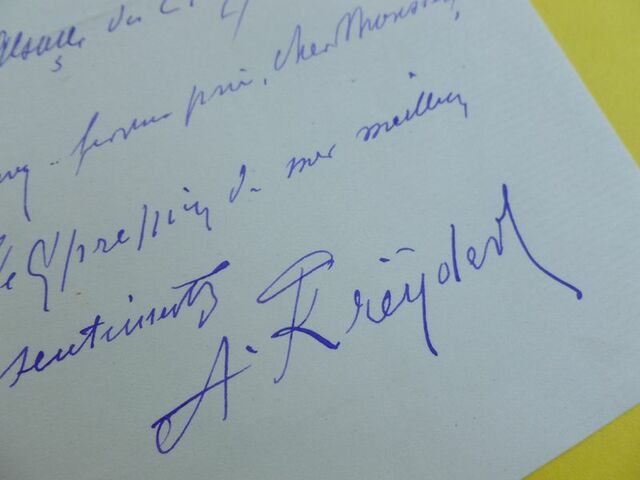 Alsace du
prie, cher Monsieur
l'Expression de mes meilleurs
sentiments
A. Kreÿder